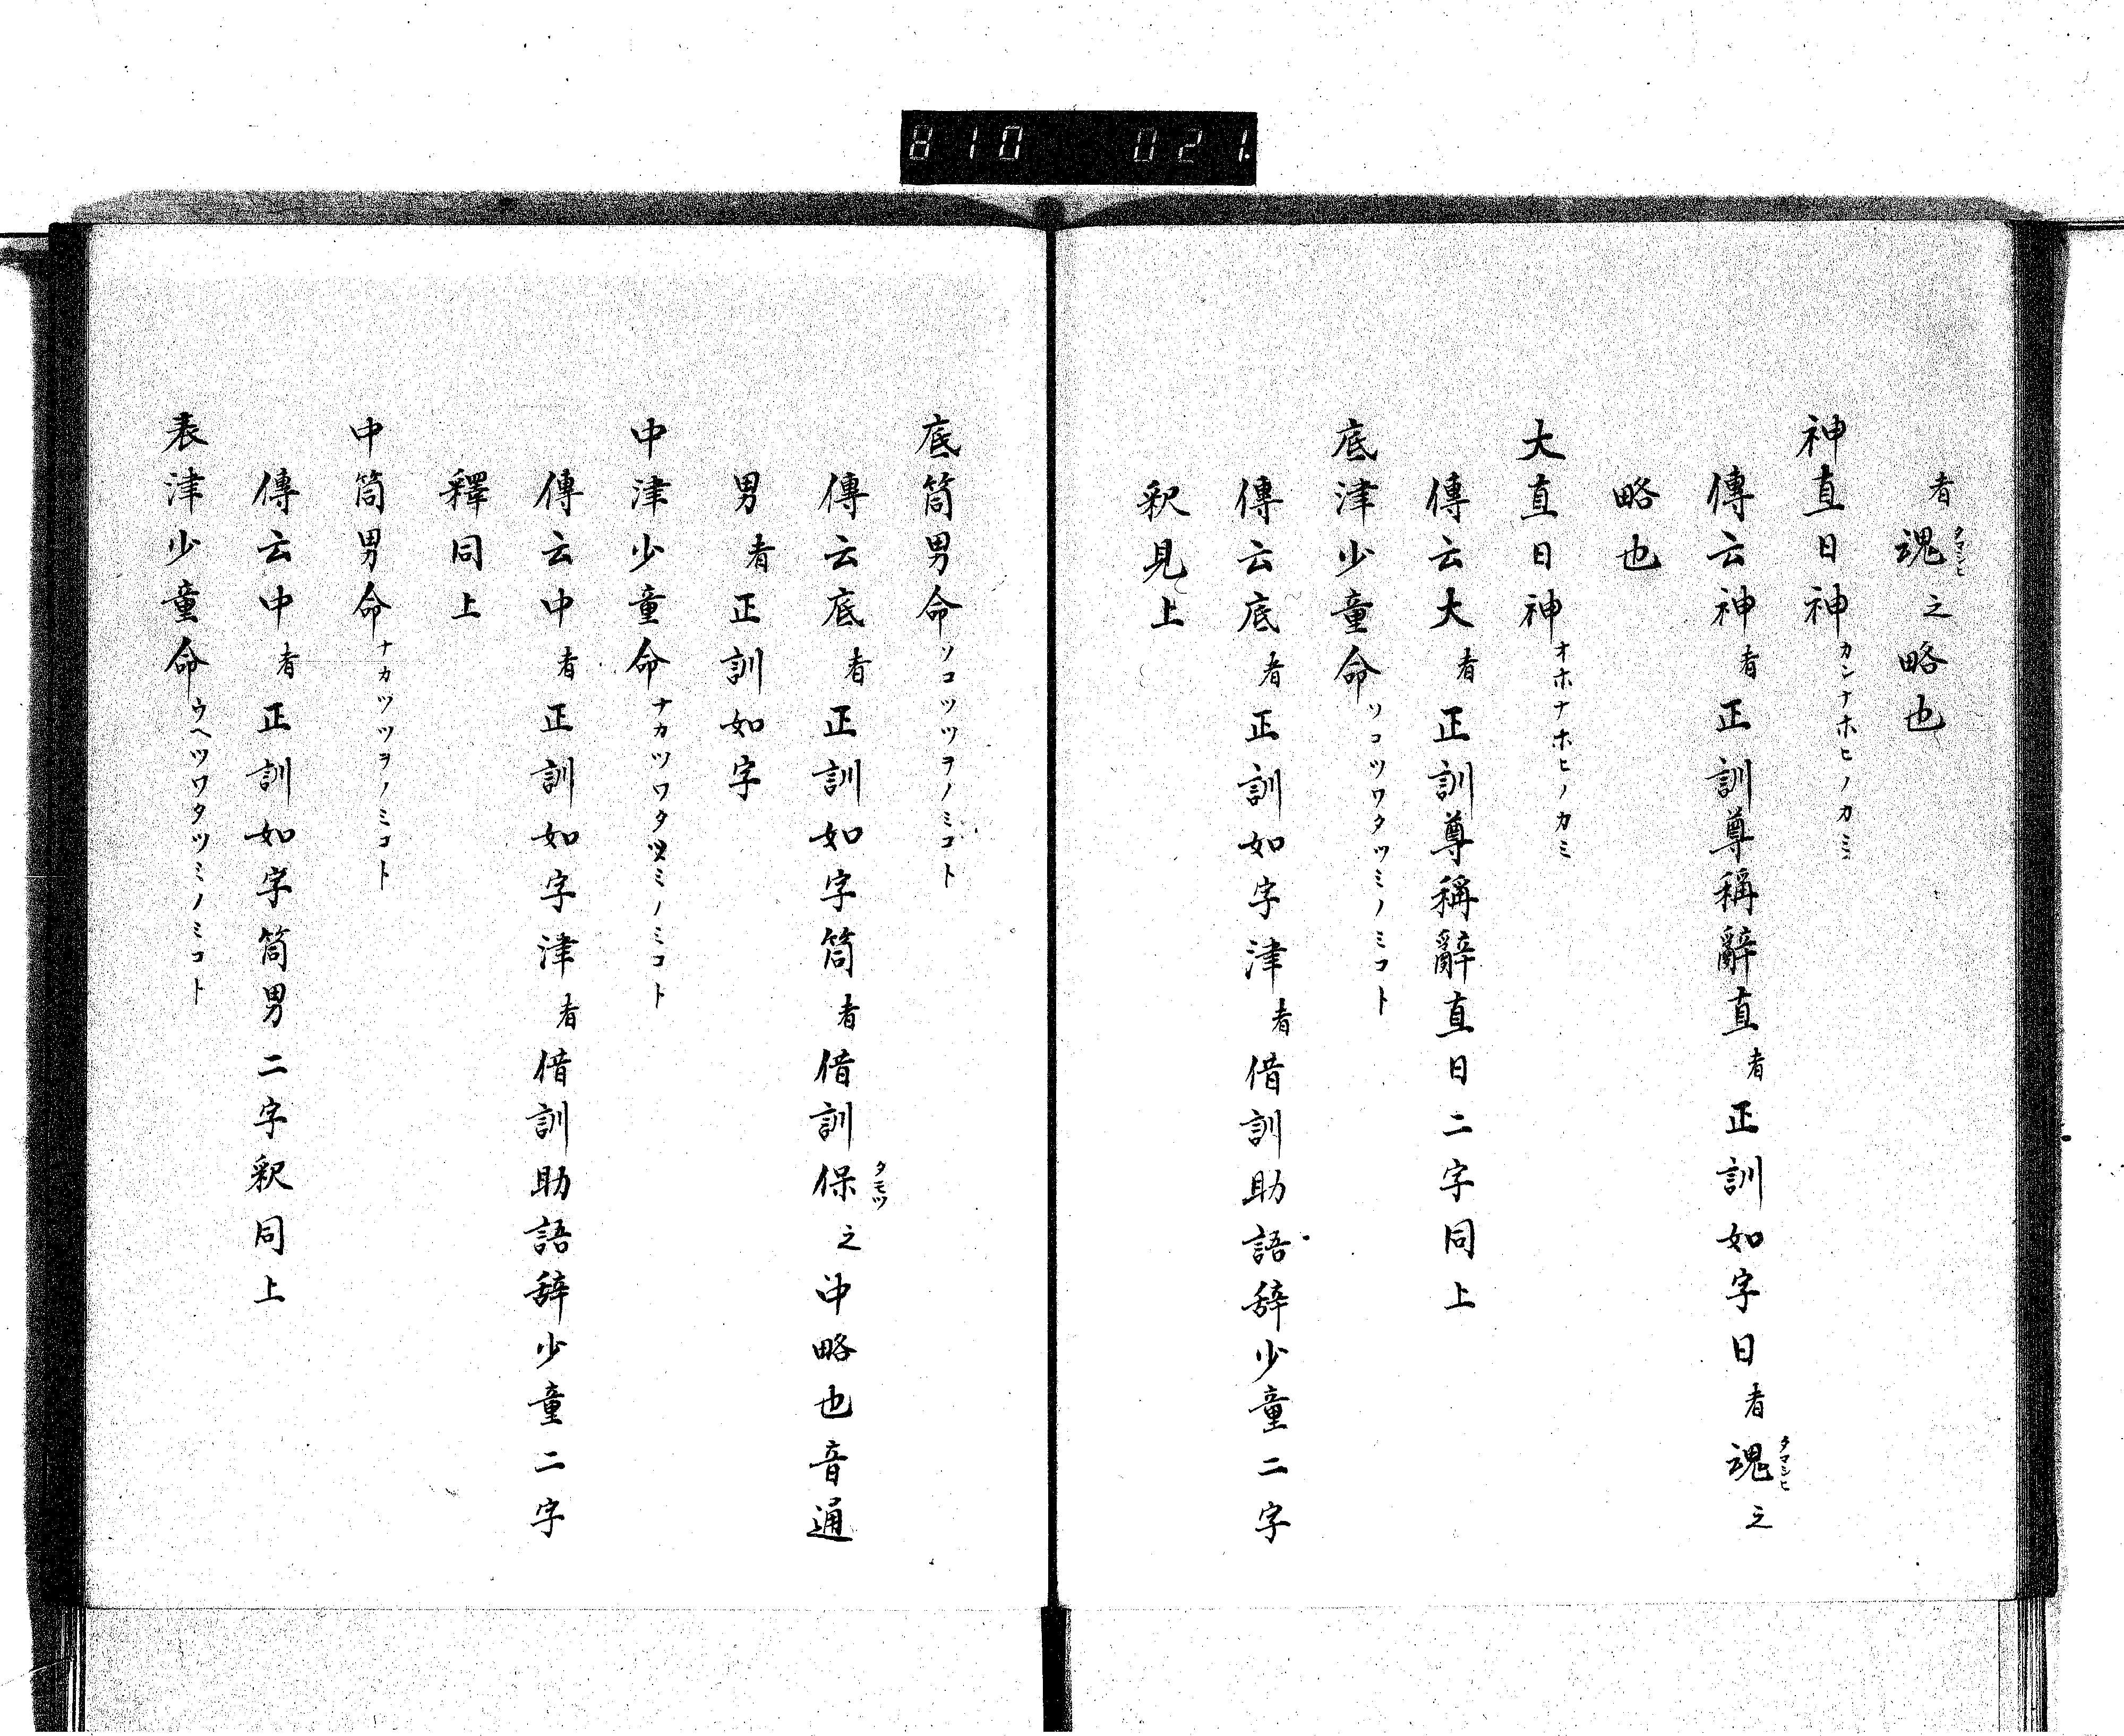 810 021.
者魂タマシヒ之略也
神直日神カンナホヒノカミ
傳云神者正訓尊稱辭直者正訓如字日者魂タマシヒ之
略也
大直日神オホナホヒノカミ
傳云大者正訓尊稱辭直日二字同上
底津少童命ソコツワタツミノミコト
傳云底者正訓如字津者借訓助語辞少童二字
釈見上
底筒男命ソコツツヲノミコト
傳云底者正訓如字筒者借訓保タモツ之中略也音通
男者正訓如字
中津少童命ナカツワタツミノミコト
傳云中者正訓如字津者借訓助語辞少童二字
釋同上
中筒男命ナカツツヲノミコト
傳云中者正訓如字筒男二字釈同上
表津少童命ウヘツワタツミノミコト